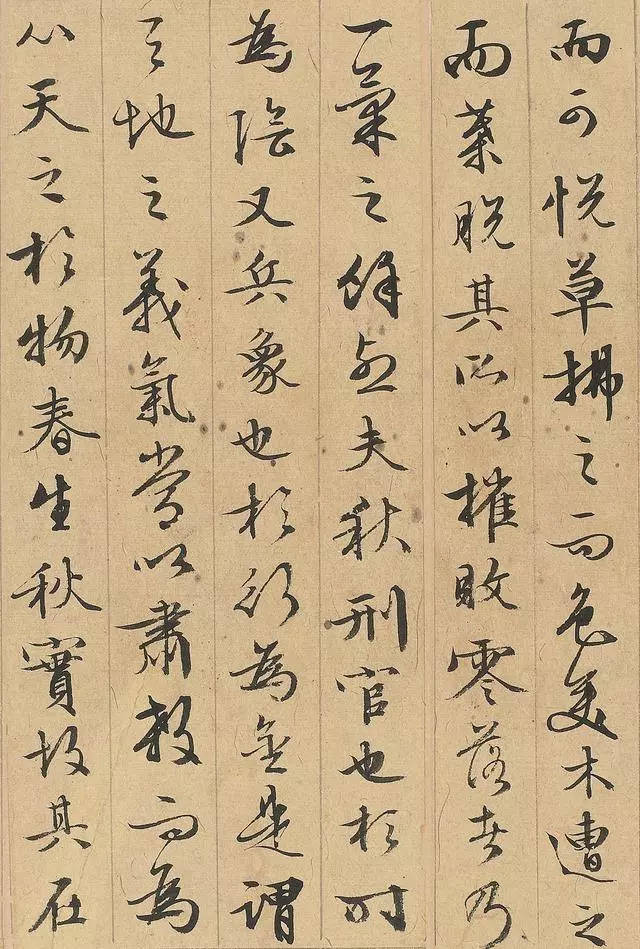 而可悅草拂之而色變木遭之
而葉脫其所以摧敗零落者乃
一氣之餘烈夫秋刑官也於時
為陰又兵象也於行為金是謂
天地之義氣常以肅殺而為
心天之於物春生秋實故其在